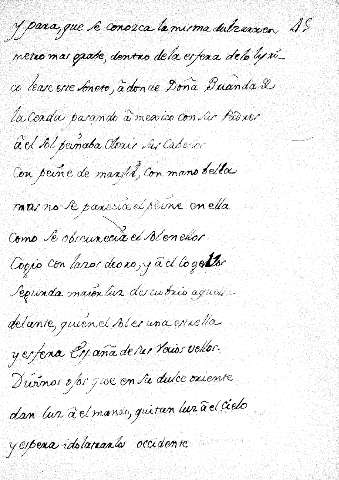 y para, que se conozca la misma dulzura en 45
metro mas grave, dentro de la esfera de lo lyri-
co lease este soneto, â donde Doña Brianda de
la Cerda pasando â mexico con sus Padres
Âl sol peinaba Cloris sus Cabellos
Con peine de marfil, con mano bella
mas no se parecia el peine en ella
como se obscurecia el sol en ellos
Cogio con lazos de oro, y al cogellos
segunda maior luz descubrio aquella
delante, quien el sol es una estrella
y esfera España de sus raios vellos.
Divinos ojos que en su dulce oriente
dan luz âl mundo, quitan luz âl cielo
y espera idolatrarlos occidente